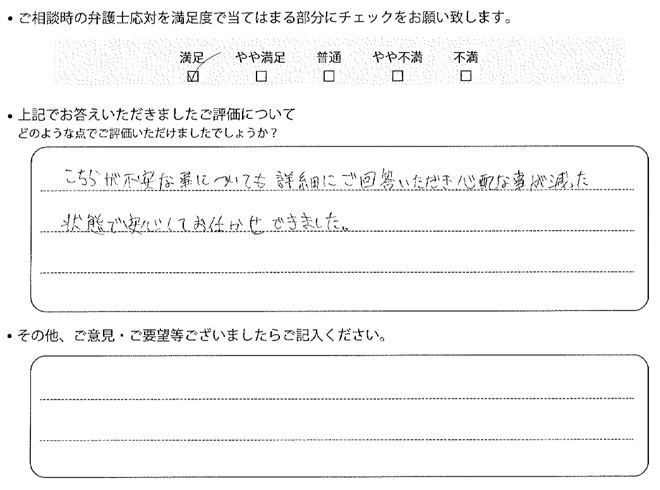 • ご相談時の弁護士応対を満足度で当てはまる部分にチェックをお願い致します。
満足 やや満足 普通 やや不満 不満
☑ ☐ ☐ ☐ ☐
• 上記でお答えいただきましたご評価について
どのような点でご評価いただけましたでしょうか？
こちらが不安な事についても詳細にご回答いただき心配な事が減った
状態で安心してお任せできました。
• その他、ご意見・ご要望等ございましたらご記入ください。